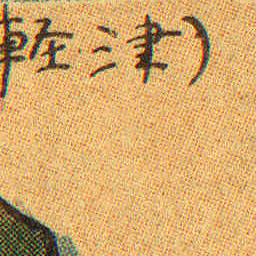 軽・津)